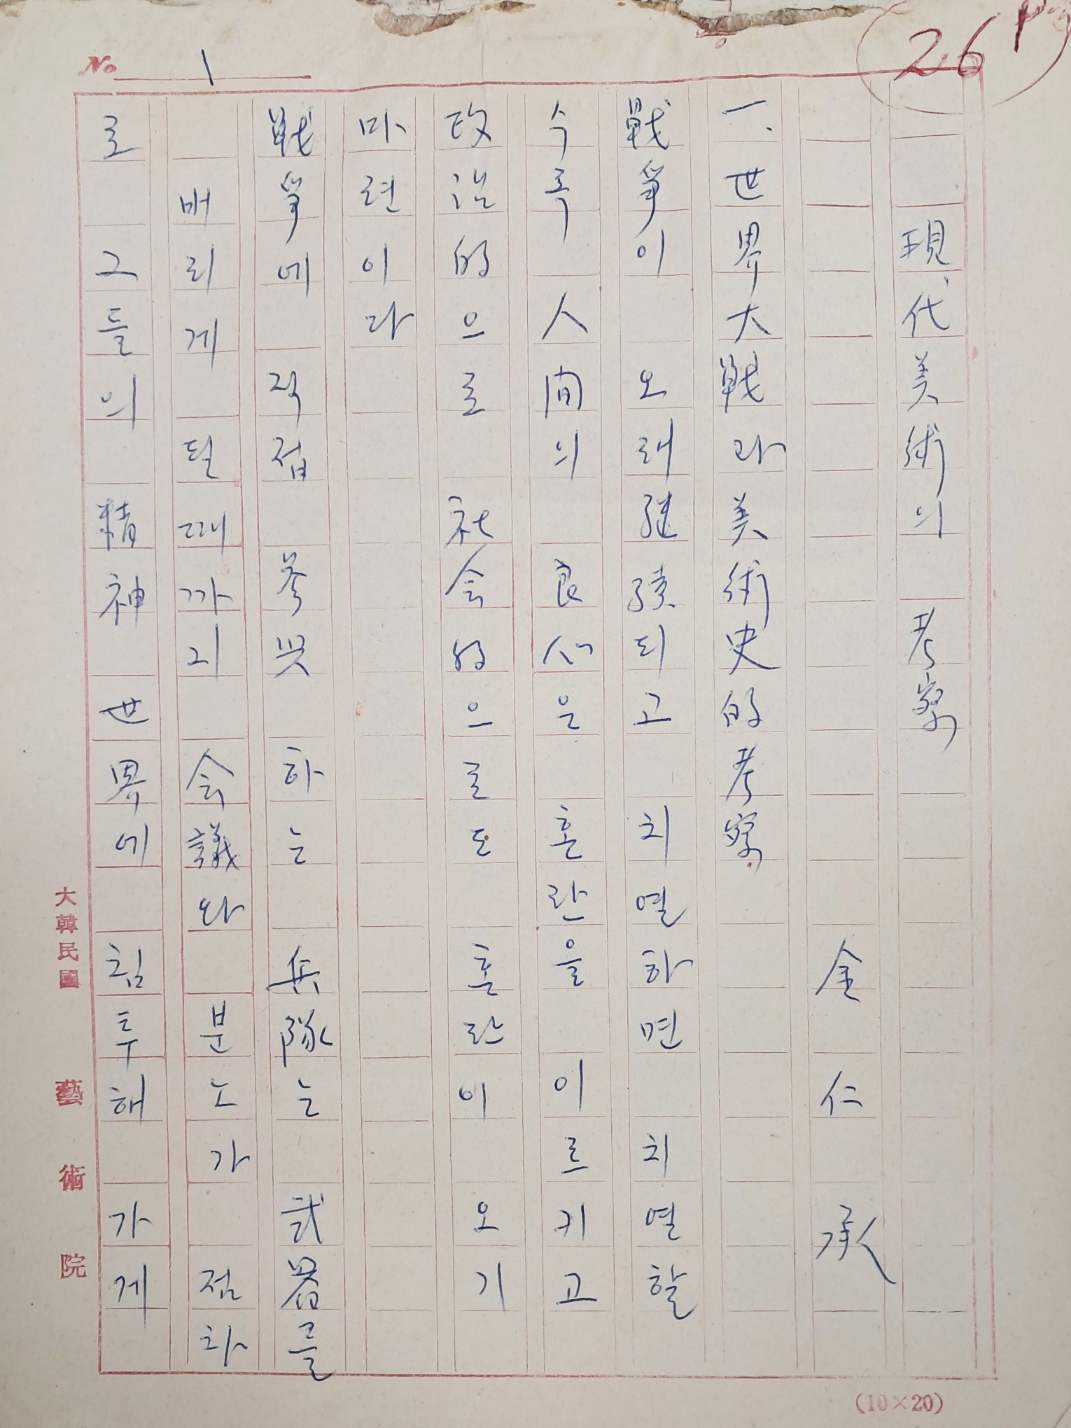 26 P
No 1
現代美術의 考察
金仁承
一. 世界大戰과美術史的考察
戰爭이 오래継續되고 치열하면 치열할
수록 人間의 良心은 혼란을 이르키고
政治的으로 社会的으로도 혼란이 오기
마련이라
戰爭에 직접 参与하는 兵隊는 武器를
버리게 될 때까지 会議와 분노가 점차
로 그들의 精神世界에 침투해 가게
大韓民國 藝術院
(10×20)